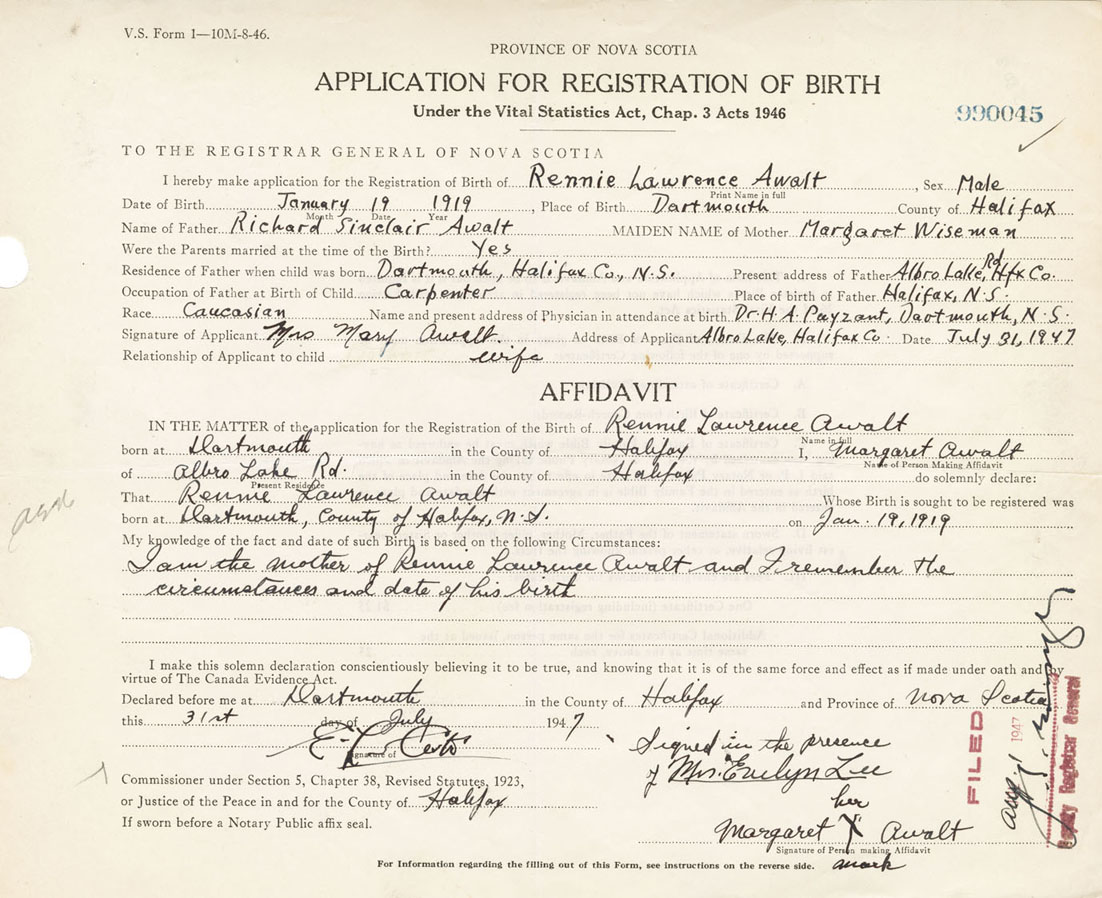 V.S. Form 1—10M-8-46.
PROVINCE OF NOVA SCOTIA
APPLICATION FOR REGISTRATION OF BIRTH
Under the Vital Statistics Act, Chap. 3 Acts 1946
990045
TO THE REGISTRAR GENERAL OF NOVA SCOTIA
I hereby make application for the Registration of Birth of Rennie Lawrence Awalt, Sex Male
Print Name in full
Date of Birth January 19 1919, Place of Birth Dartmouth County of Halifax
Month Date Year
Name of Father Richard Sinclair Awalt MAIDEN NAME of Mother Margaret Wiseman
Were the Parents married at the time of the Birth? Yes
Residence of Father when child was born Dartmouth, Halifax Co., N.S. Present address of Father Albro Lake, Rd, Hfx Co.
Occupation of Father at Birth of Child Carpenter Place of birth of Father Halifax, N.S.
Race Caucasian Name and present address of Physician in attendance at birth Dr. H. A. Payzant, Dartmouth, N.S.
Signature of Applicant Mrs Mary Awalt. Address of Applicant Albro Lake, Halifax Co. Date July 31, 1947
Relationship of Applicant to child wife
AFFIDAVIT
IN THE MATTER of the application for the Registration of the Birth of Rennie Lawrence Awalt
Name in full
born at Dartmouth in the County of Halifax I, Margaret Awalt
Name of Person Making Affidavit
of Albro Lake Rd. in the County of Halifax do solemnly declare:
Present Residence
That Rennie Lawrence Awalt Whose Birth is sought to be registered was
born at Dartmouth, County of Halifax, N.S. on Jan. 19, 1919
My knowledge of the fact and date of such Birth is based on the following Circumstances:
I am the mother of Rennie Lawrence Awalt and I remember the
circumstances and date of his birth
I make this solemn declaration conscientiously believing it to be true, and knowing that it is of the same force and effect as if made under oath and by
virtue of The Canada Evidence Act.
Declared before me at Dartmouth in the County of Halifax and Province of Nova Scotia
this 31st day of July 1947
Signature of
Signed in the presence
of Mrs. Evelyn Lee
Commissioner under Section 5, Chapter 38, Revised Statutes, 1923,
or Justice of the Peace in and for the County of Halifax
If sworn before a Notary Public affix seal.
her
Margaret X Awalt
Signature of Person making Affidavit
mark
For Information regarding the filling out of this Form, see instructions on the reverse side.
FILED
Aug 1 1947
Deputy Registrar General